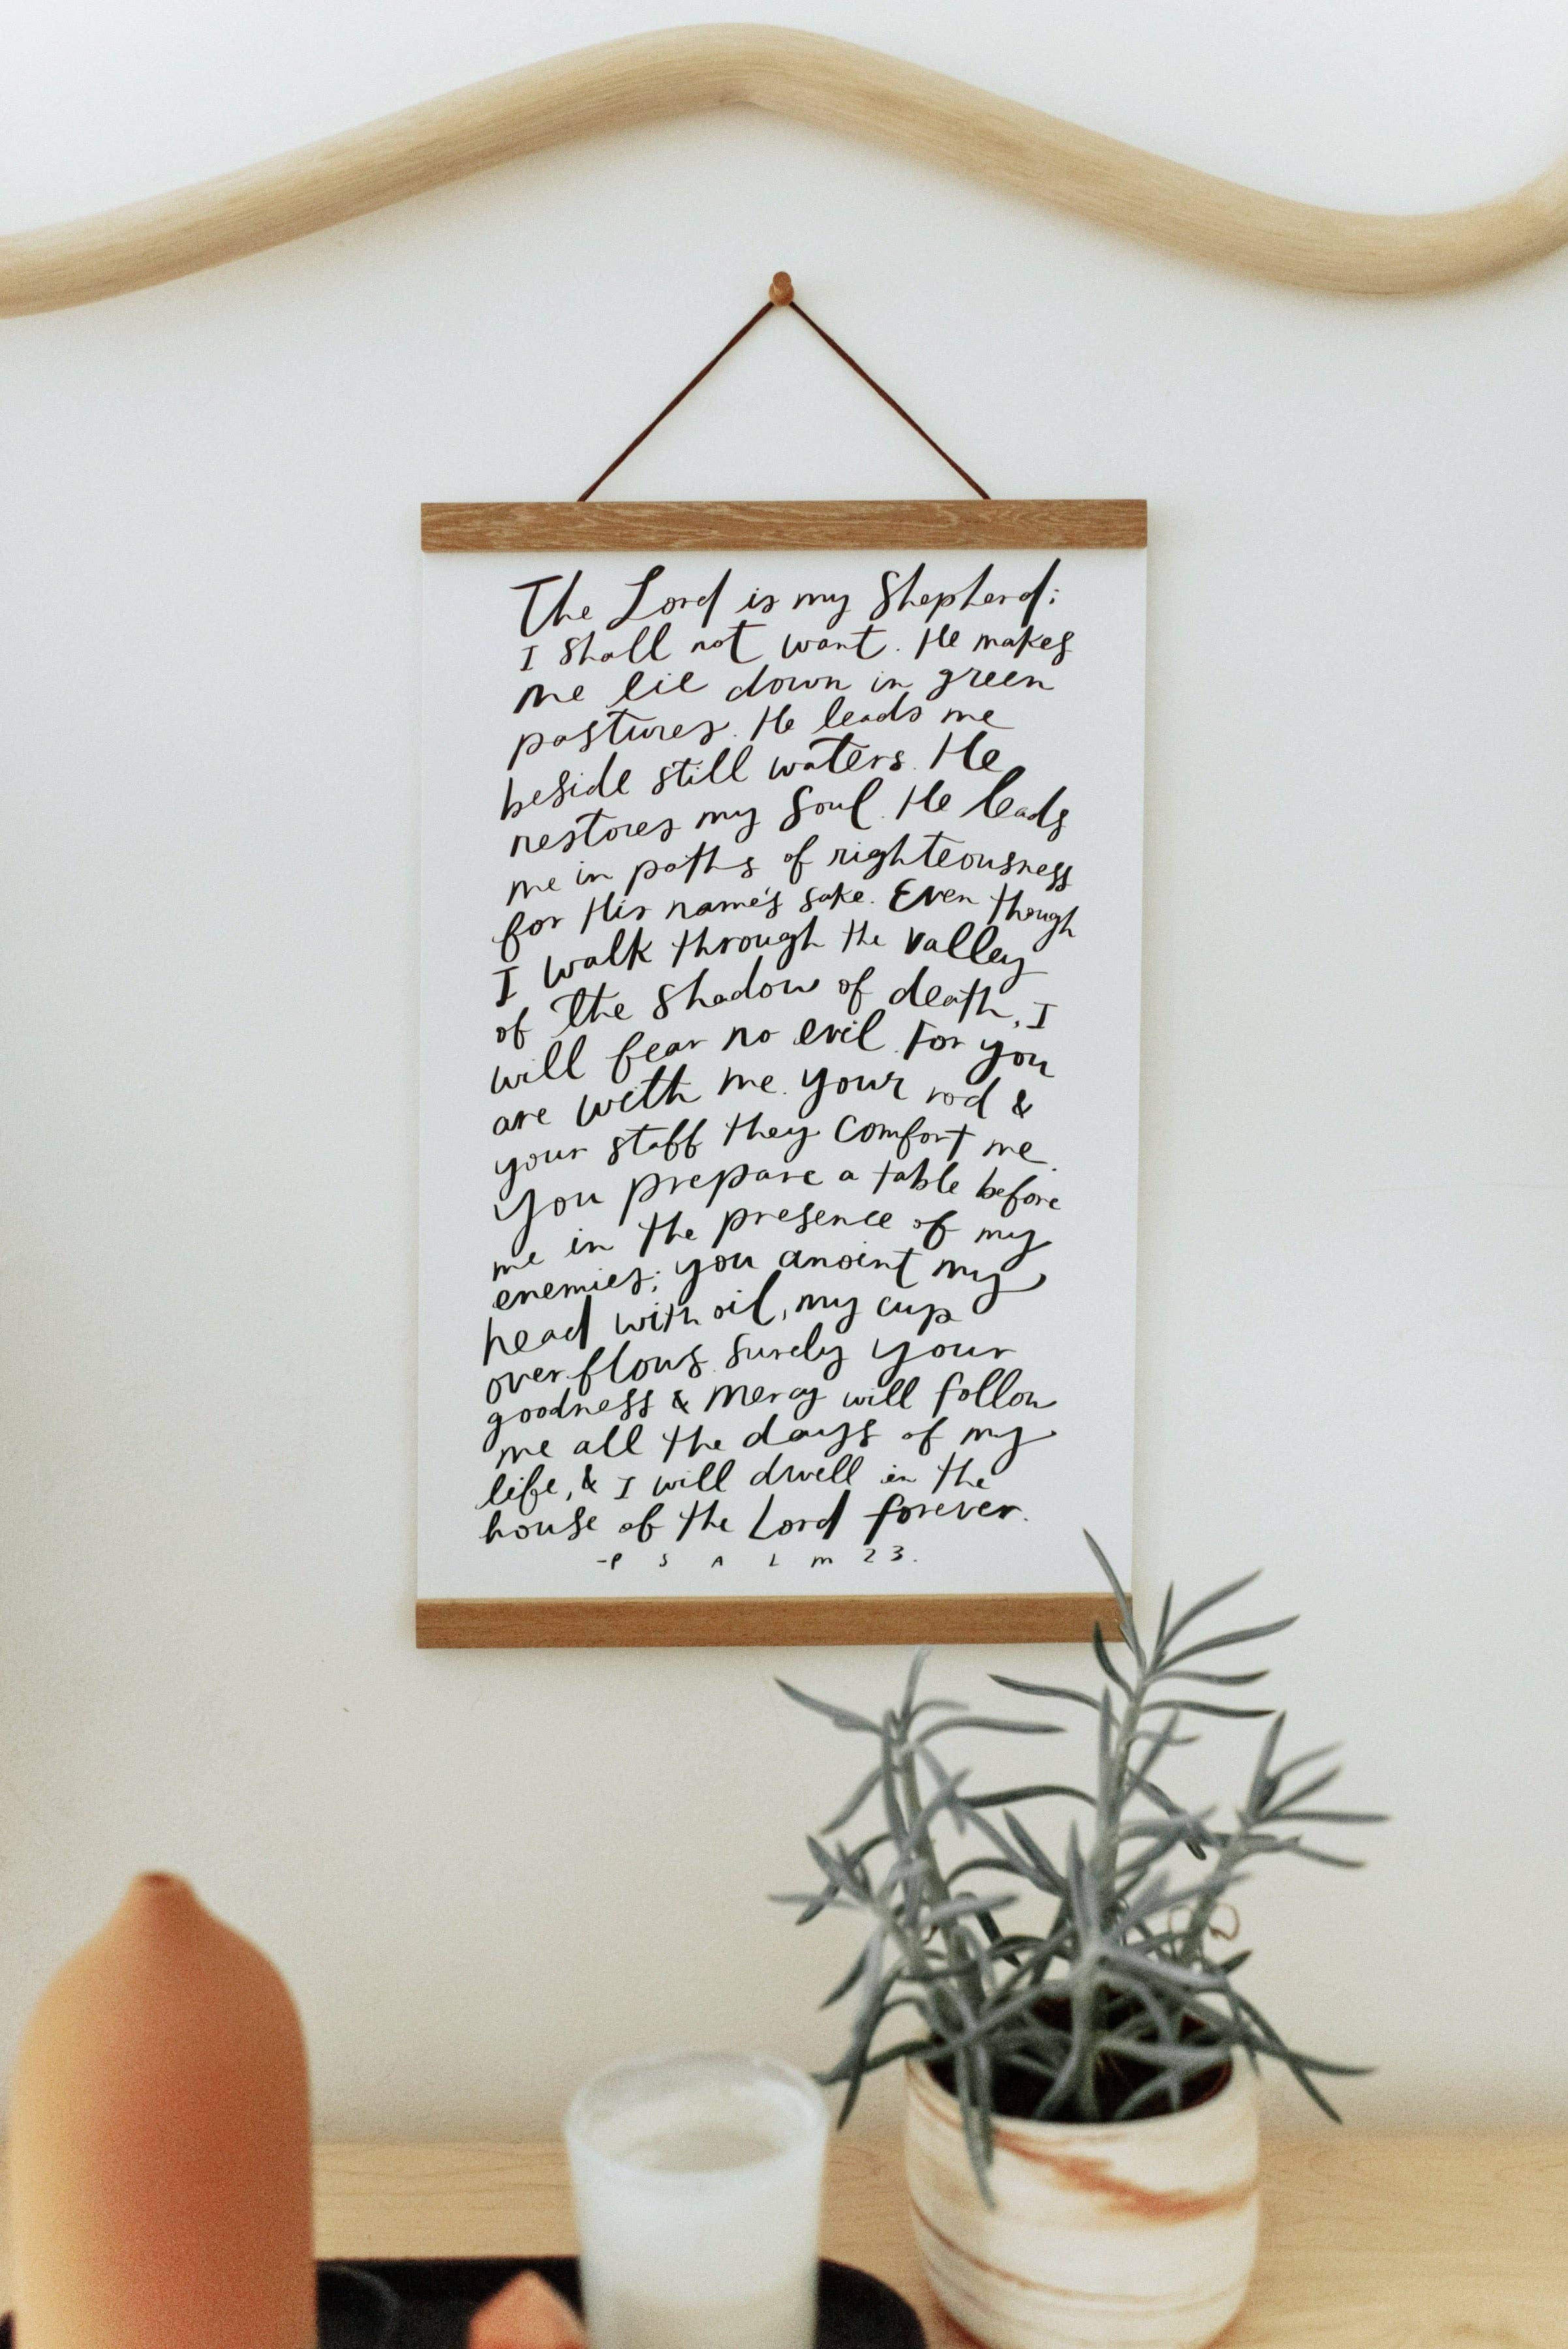 The Lord is my Shepherd;
I shall not want. He makes
me lie down in green
pastures. He leads me
beside still waters. He
restores my soul. He leads
me in paths of righteousness
for His name's sake. Even though
I walk through the valley
of the shadow of death, I
will fear no evil. For you
are with me. Your rod &
your staff they comfort me.
You prepare a table before
me in the presence of my
enemies; you anoint my
head with oil, my cup
overflows. Surely your
goodness & mercy will follow
me all the days of my
life, & I will dwell in the
house of the Lord forever.
-PSALM 23.